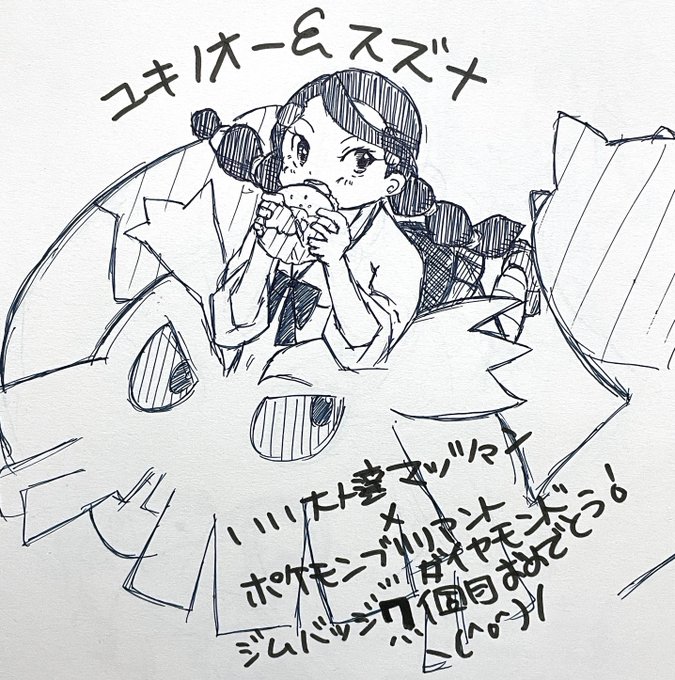 ユキノオー&スズナ
いい大人達マヅリマン
×
ポケモンブリリアント
ダイヤモンド
ジムバッジ7個目おめでとう!
ヽ(^o^)ノ